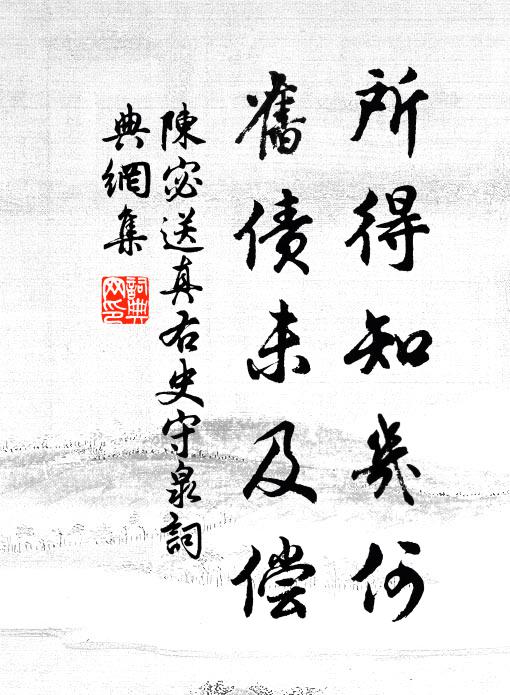 所得知几何
舊债未及偿
陳宓送真右史守泉詞
典網集
詞典
网印